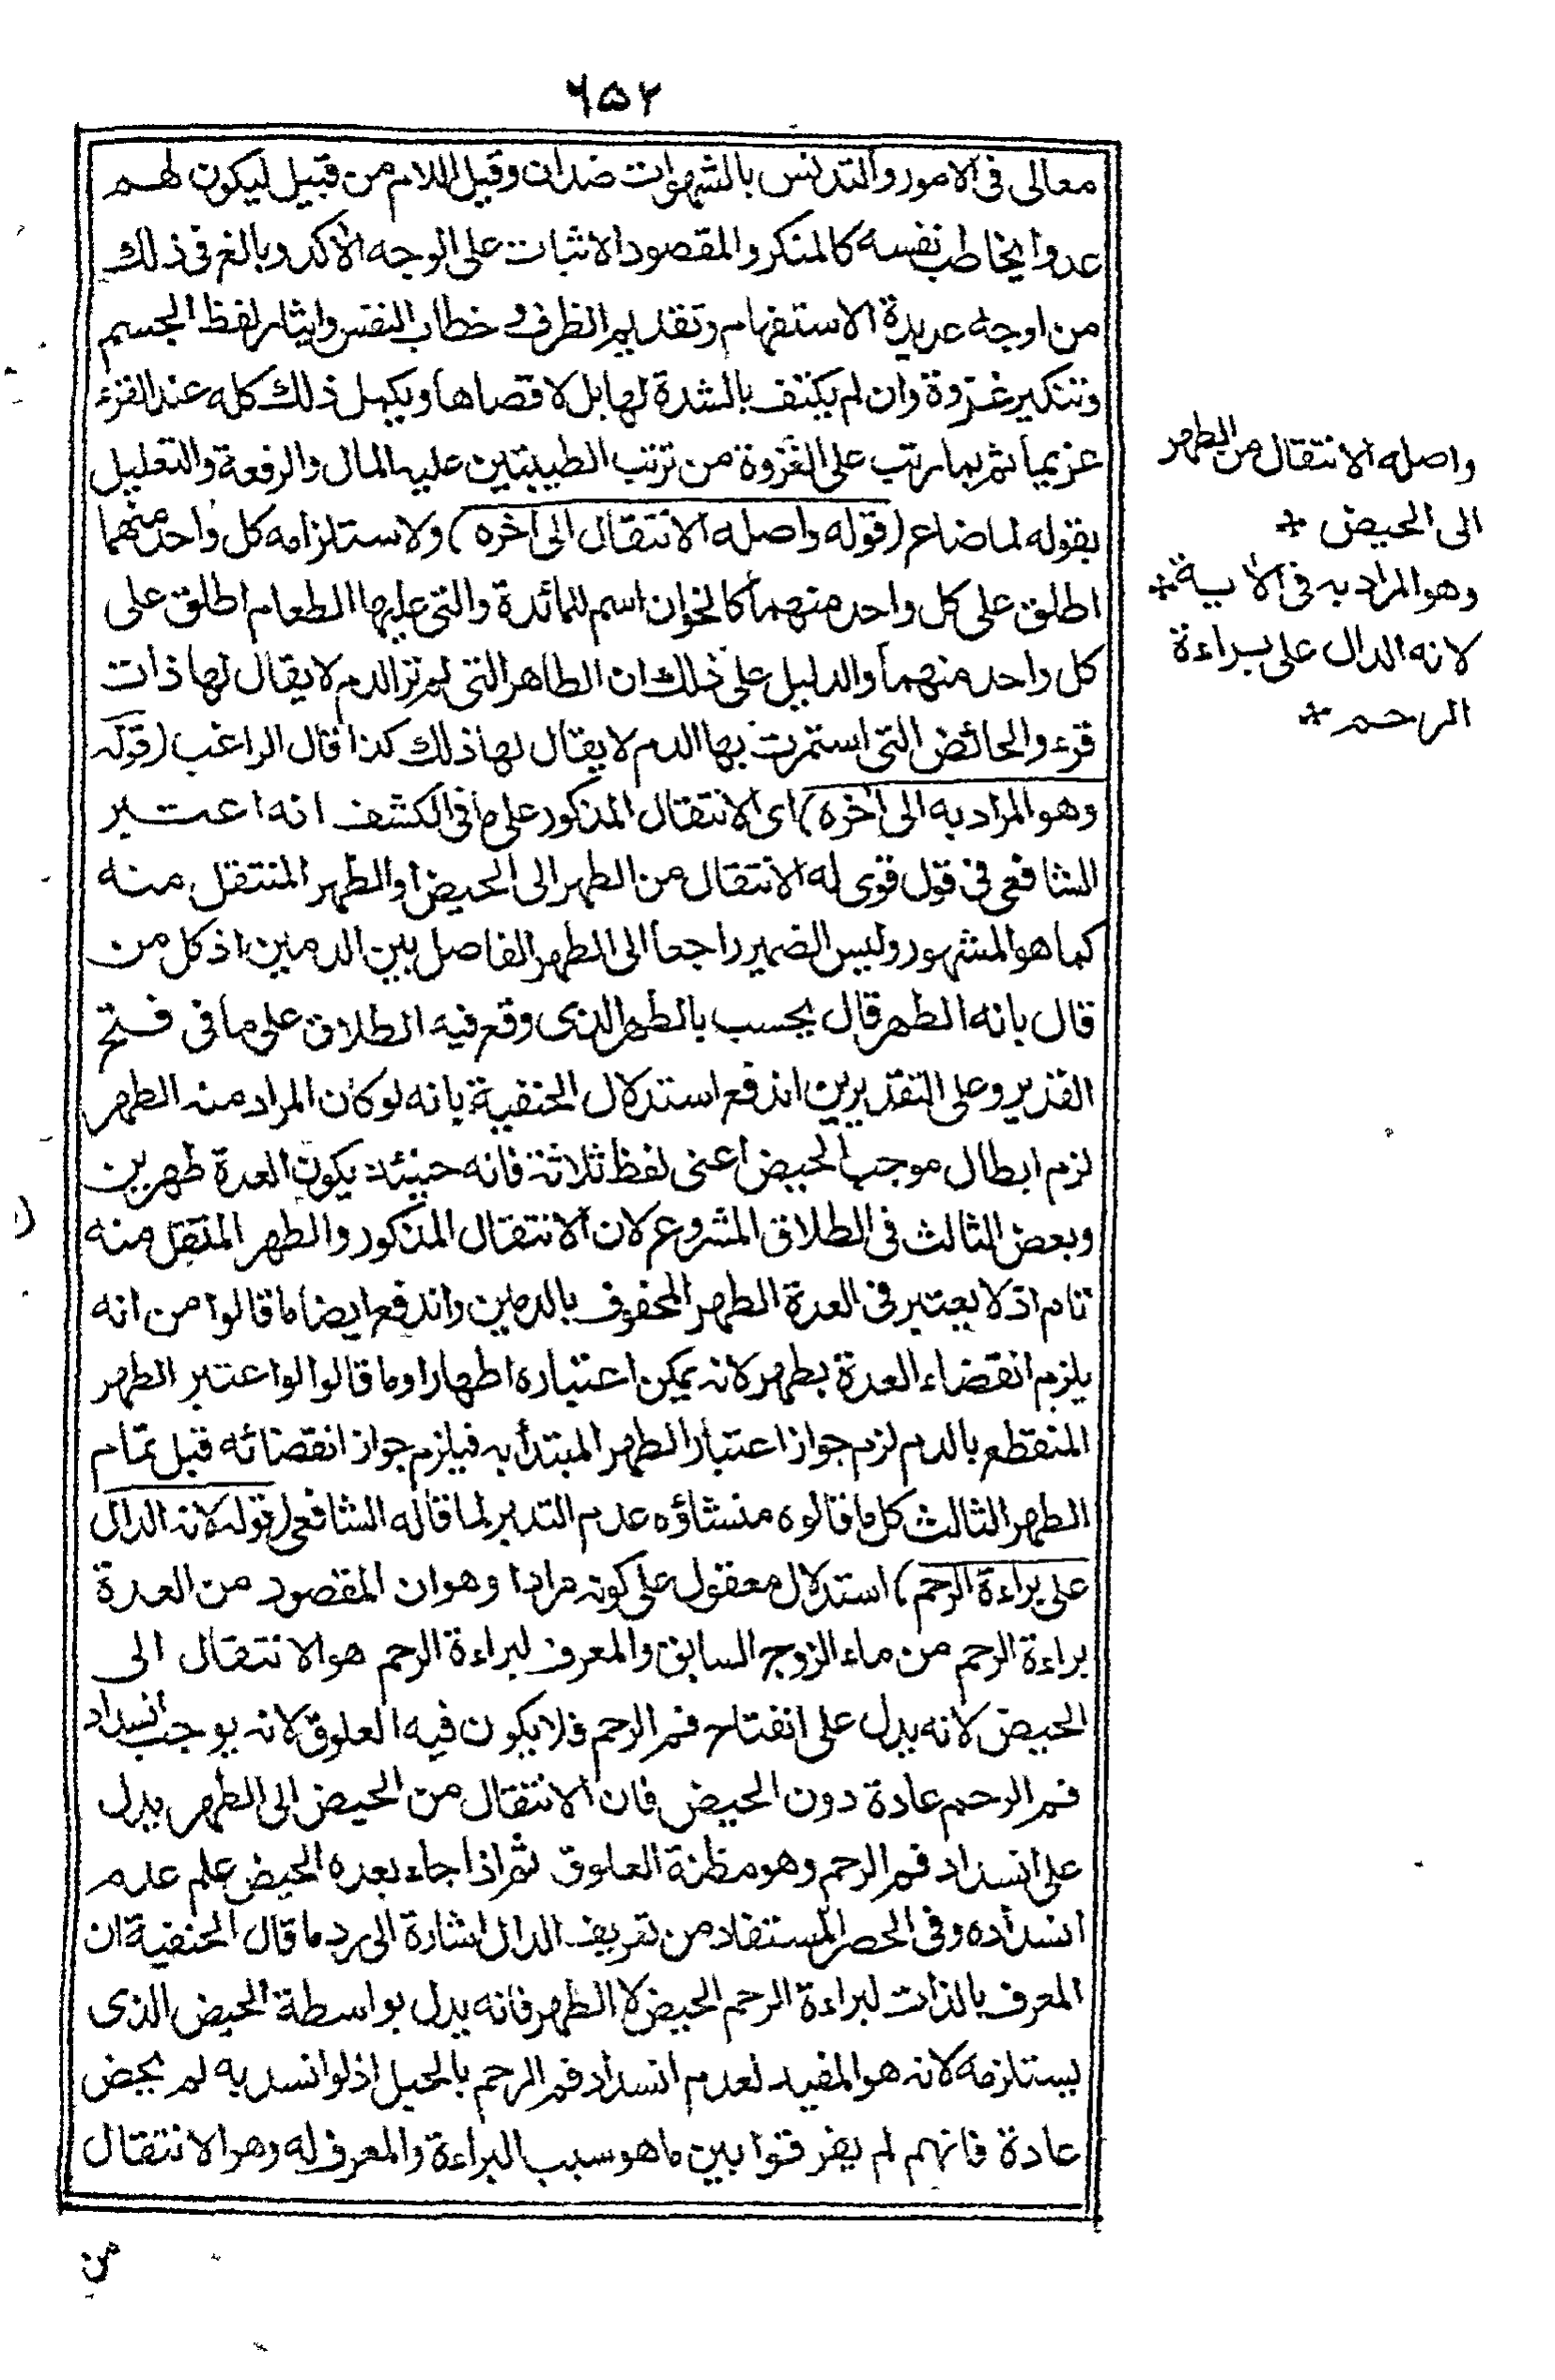 ٦٥٢
معالى فى الامور والتدنس بالشهوات ضدان وقيل اللام من قبيل ليكون لهم
عدوا يخاطب نفسه كالمنكر والمقصود الاثبات على الوجه الاكد وبالغ فى ذلك
من اوجه عديدة الاستفهام وتقديم الظرف و خطاب النفس وايثار لفظ الجسم
وتنكير غزوة وان لم يكتف بالشدة لها بل لاقصاها ويكمل ذلك كله عند الفزء
عزيما ثم بما رتب على الغزوة من ترتب الطيبتين عليه المال والرفعة والتعليل
بقوله لما ضاع (قوله واصله الانتقال الى اخره) ولاستلزامه كل واحد منهما
اطلق على كل واحد منهما كالخوان اسم للمائدة والتى عليها الطعام اطلق على
كل واحد منهما والدليل على ذلك ان الطاهر التى لم تر الدم لا يقال لها ذات
قرء والحائض التى استمرت بها الدم لا يقال لها ذلك كذا قال الراغب (قوله
وهو المراد به الى اخره) اى الانتقال المذكور على ما فى الكشف انه اعتبر
الشافعى فى قول قوى له الانتقال من الطهر الى الحيض او الطهر المنتقل منه
كما هو المشهور وليس الضمير راجعا الى الطهر الفاصل بين الدمين اذ كل من
قال بانه الطهر قال يحسب بالطهر الذى وقع فيه الطلاق على ما فى فتح
القدير وعلى التقديرين اندفع استدلال الحنفية بانه لو كان المراد منه الطهر
لزم ابطال موجب الحيض اعنى لفظ ثلاثة فانه حينئذ يكون العدة طهرين
وبعض الثالث فى الطلاق المشروع لان الانتقال المذكور والطهر المنتقل منه
تام اذ لا يعتبر فى العدة الطهر المحفوف بالدمين واندفع ايضا ما قالوا من انه
يلزم انقضاء العدة بطهر لانه يمكن اعتباره اطهارا وما قالوا لو اعتبر الطهر
المنقطع بالدم لزم جواز اعتبار الطهر المبتدأ به فيلزم جواز انقضائه قبل تمام
الطهر الثالث كل ما قالوه منشاؤه عدم التدبر لما قاله الشافعى (قوله لانه الدال
على براءة الرحم) استدلال معقول على كونه مرادا وهو ان المقصود من العدة
براءة الرحم من ماء الزوج السابق والمعرف لبراءة الرحم هو الانتقال الى
الحيض لانه يدل على انفتاح فم الرحم فلا يكون فيه العلوق لانه يوجب انسداد
فم الرحم عادة دون الحيض فان الانتقال من الحيض الى الطهر يدل
على انسداد فم الرحم وهو مظنة العلوق ثم اذا جاء بعده الحيض علم عدم
انسداده وفى الحصر المستفاد من تعريف الدال اشارة الى رد ما قال الحنفية ان
المعرف بالذات لبراءة الرحم الحيض لا الطهر فانه يدل بواسطة الحيض الذى
يستلزمه لانه هو المفيد لعدم انسداد فم الرحم بالحبل اذ لو انسد به لم يحض
عادة فانهم لم يفرقوا بين ما هو سبب البراءة والمعرف له وهو الانتقال
من
واصله الانتقال من الطهر
الى الحيض *
وهو المراد به فى الاية *
لانه الدال على براءة
الرحم *